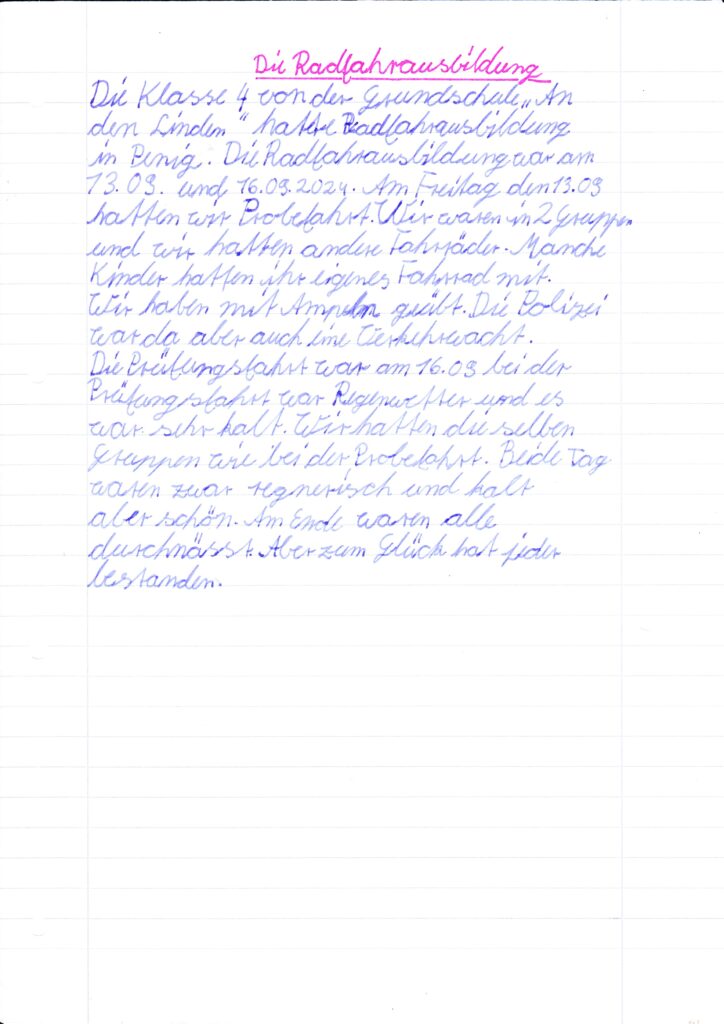 Die Radfahrausbildung
Die Klasse 4 von der Grundschule „An
den Linden" hatte Radfahrausbildung
in Penig. Die Radfahrausbildung war am
13.09. und 16.09.2024. Am Freitag den 13.09
hatten wir Probefahrt. Wir waren in 2 Gruppen
und wir hatten andere Fahrräder. Manche
Kinder hatten ihr eigenes Fahrrad mit.
Wir haben mit Ampeln geübt. Die Polizei
war da aber auch eine Verkehrwacht.
Die Prüfungsfahrt war am 16.09 bei der
Prüfungsfahrt war Regenwetter und es
war sehr kalt. Wir hatten die selben
Gruppen wie bei der Probefahrt. Beide Tag
waren zwar regnerisch und kalt
aber schön. Am Ende waren alle
durchnässt. Aber zum Glück hat jeder
bestanden.